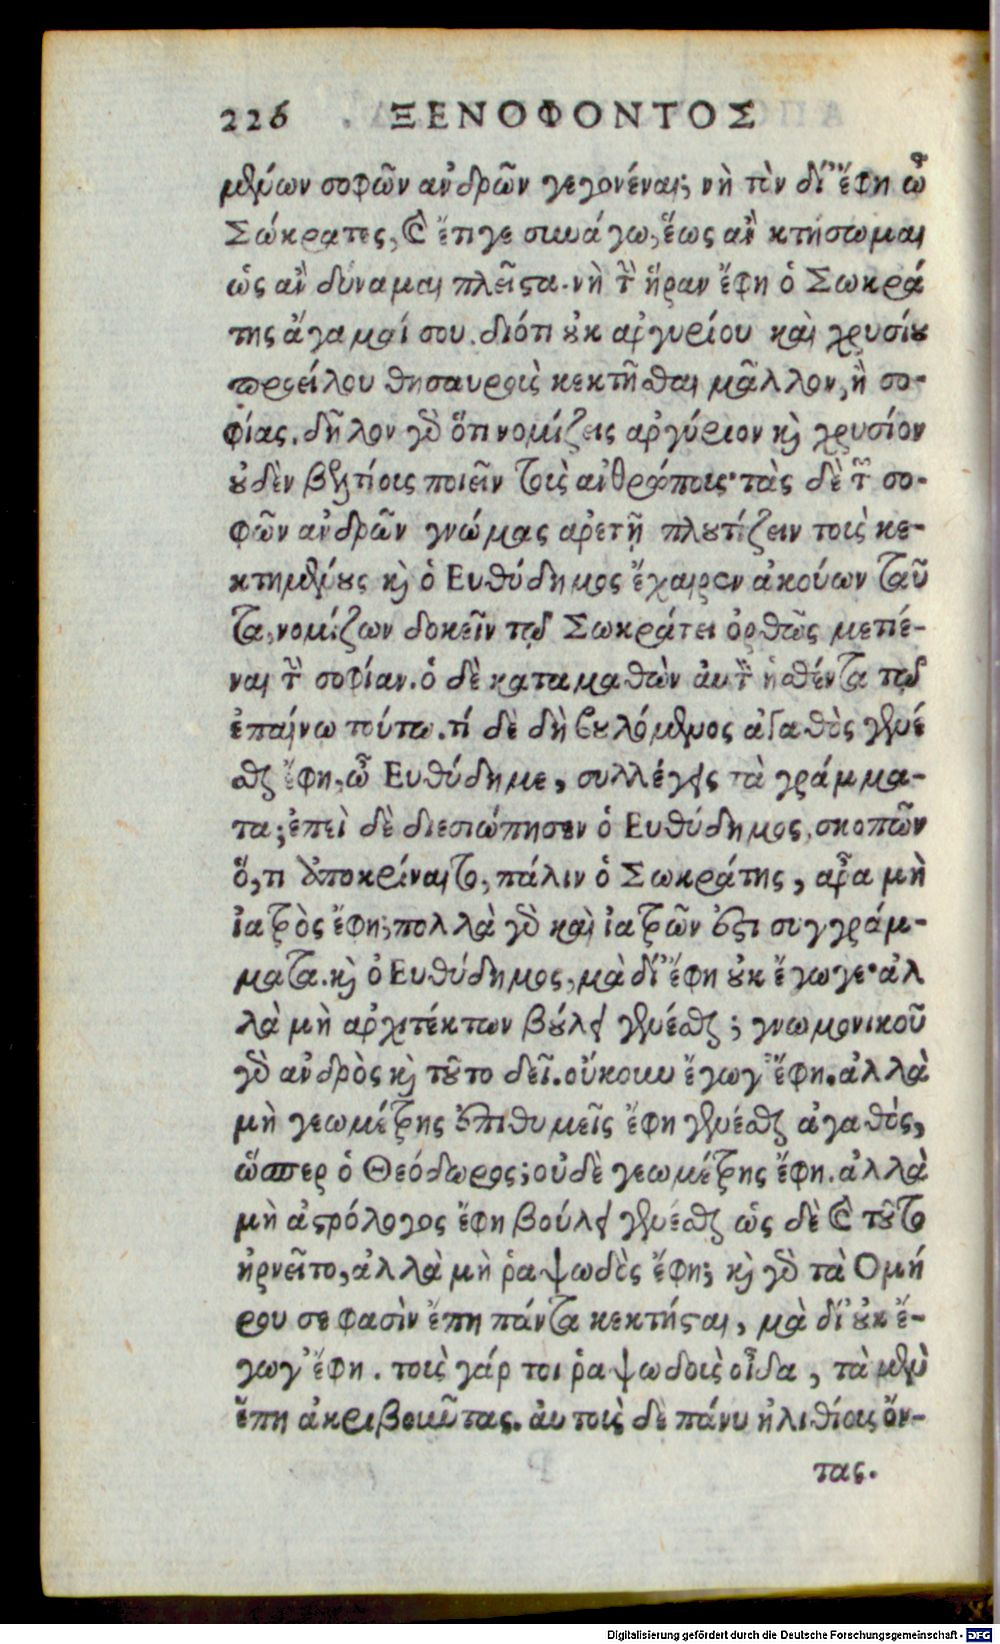 226 ΞΕΝΟΦΟΝΤΟΣ
μένων σοφῶν ἀνδρῶν γεγονέναι; νὴ τὸν δί' ἔφη ὦ
Σώκρατες, καὶ ἔτι γε συνάγω, ἕως ἂν κτήσωμαι
ὡς ἂν δύναμαι πλεῖστα. νὴ τὴν ἥραν ἔφη ὁ Σωκρά
της ἄγαμαί σου. διότι οὐκ ἀργυρίου καὶ χρυσίου
προείλου θησαυροὺς κεκτῆσθαι μᾶλλον, ἢ σο-
φίας. δῆλον γὰρ ὅτι νομίζεις ἀργύριον καὶ χρυσίον
οὐδὲν βελτίους ποιεῖν τοὺς ἀνθρώπους· τὰς δὲ τῶν σο-
φῶν ἀνδρῶν γνώμας ἀρετῇ πλουτίζειν τοὺς κε-
κτημένους καὶ ὁ Ευθύδημος ἔχαιρεν ἀκούων ταῦ
τα, νομίζων δοκεῖν τῷ Σωκράτει ὀρθῶς μετιέ-
ναι τὴν σοφίαν. ὁ δὲ καταμαθὼν αὐτὸν ἡσθέντα τῷ
ἐπαίνω τούτω. τί δὲ δὴ βουλόμενος ἀγαθὸς γενέ
σθαι ἔφη, ὦ Ευθύδημε, συλλέγεις τὰ γράμμα-
τα; ἐπεὶ δὲ διεσιώπησεν ὁ Ευθύδημος, σκοπῶν
ὅ,τι ἀποκρίναιτο, πάλιν ὁ Σωκράτης, ἆρα μὴ
ἰατρὸς ἔφη; πολλὰ γὰρ καὶ ἰατρῶν ἐστι συγγράμ-
ματα. καὶ ὁ Ευθύδημος, μὰ δί' ἔφη οὐκ ἔγωγε· ἀλ
λὰ μὴ ἀρχιτέκτων βούλει γενέσθαι; γνωμονικοῦ
γὰρ ἀνδρὸς καὶ τοῦτο δεῖ. οὔκουν ἔγωγ' ἔφη. ἀλλὰ
μὴ γεωμέτρης ἐπιθυμεῖς ἔφη γενέσθαι ἀγαθὸς,
ὥσπερ ὁ Θεόδωρος; οὐδὲ γεωμέτρης ἔφη. ἀλλὰ
μὴ ἀστρόλογος ἔφη βούλει γενέσθαι ὡς δὲ καὶ τοῦτο
ἠρνεῖτο, ἀλλὰ μὴ ῥαψωδὸς ἔφη; καὶ γὰρ τὰ Ομή
ρου σε φασὶν ἔπη πάντα κεκτῆσθαι, μὰ δί' οὐκ ἔ-
γωγ' ἔφη. τοὺς γάρ τοι ῥαψωδοὺς οἶδα, τὰ μὲν
ἔπη ἀκριβοῦντας. αὐτοὺς δὲ πάνυ ἠλιθίους ὄν-
τας.
Digitalisierung gefördert durch die Deutsche Forschungsgemeinschaft - DFG